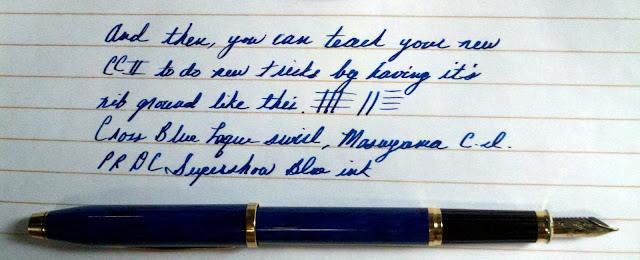 And then, you can teach your new
CCII to do new tricks by having it's
nib ground like this.
Cross Blue Laque swirl, Masuyama C.I.
PR DC Supershow Blue ink